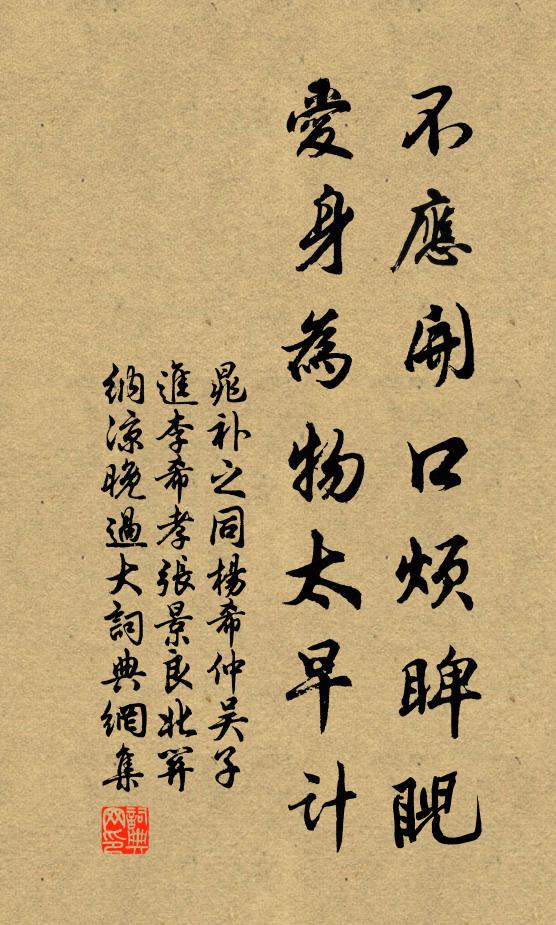 不應開口煩睥睨
愛身為物太早計
晁补之同楊希仲吴子
進李希孝張景良北釁
納涼晚過大詞典網集
詞典网印